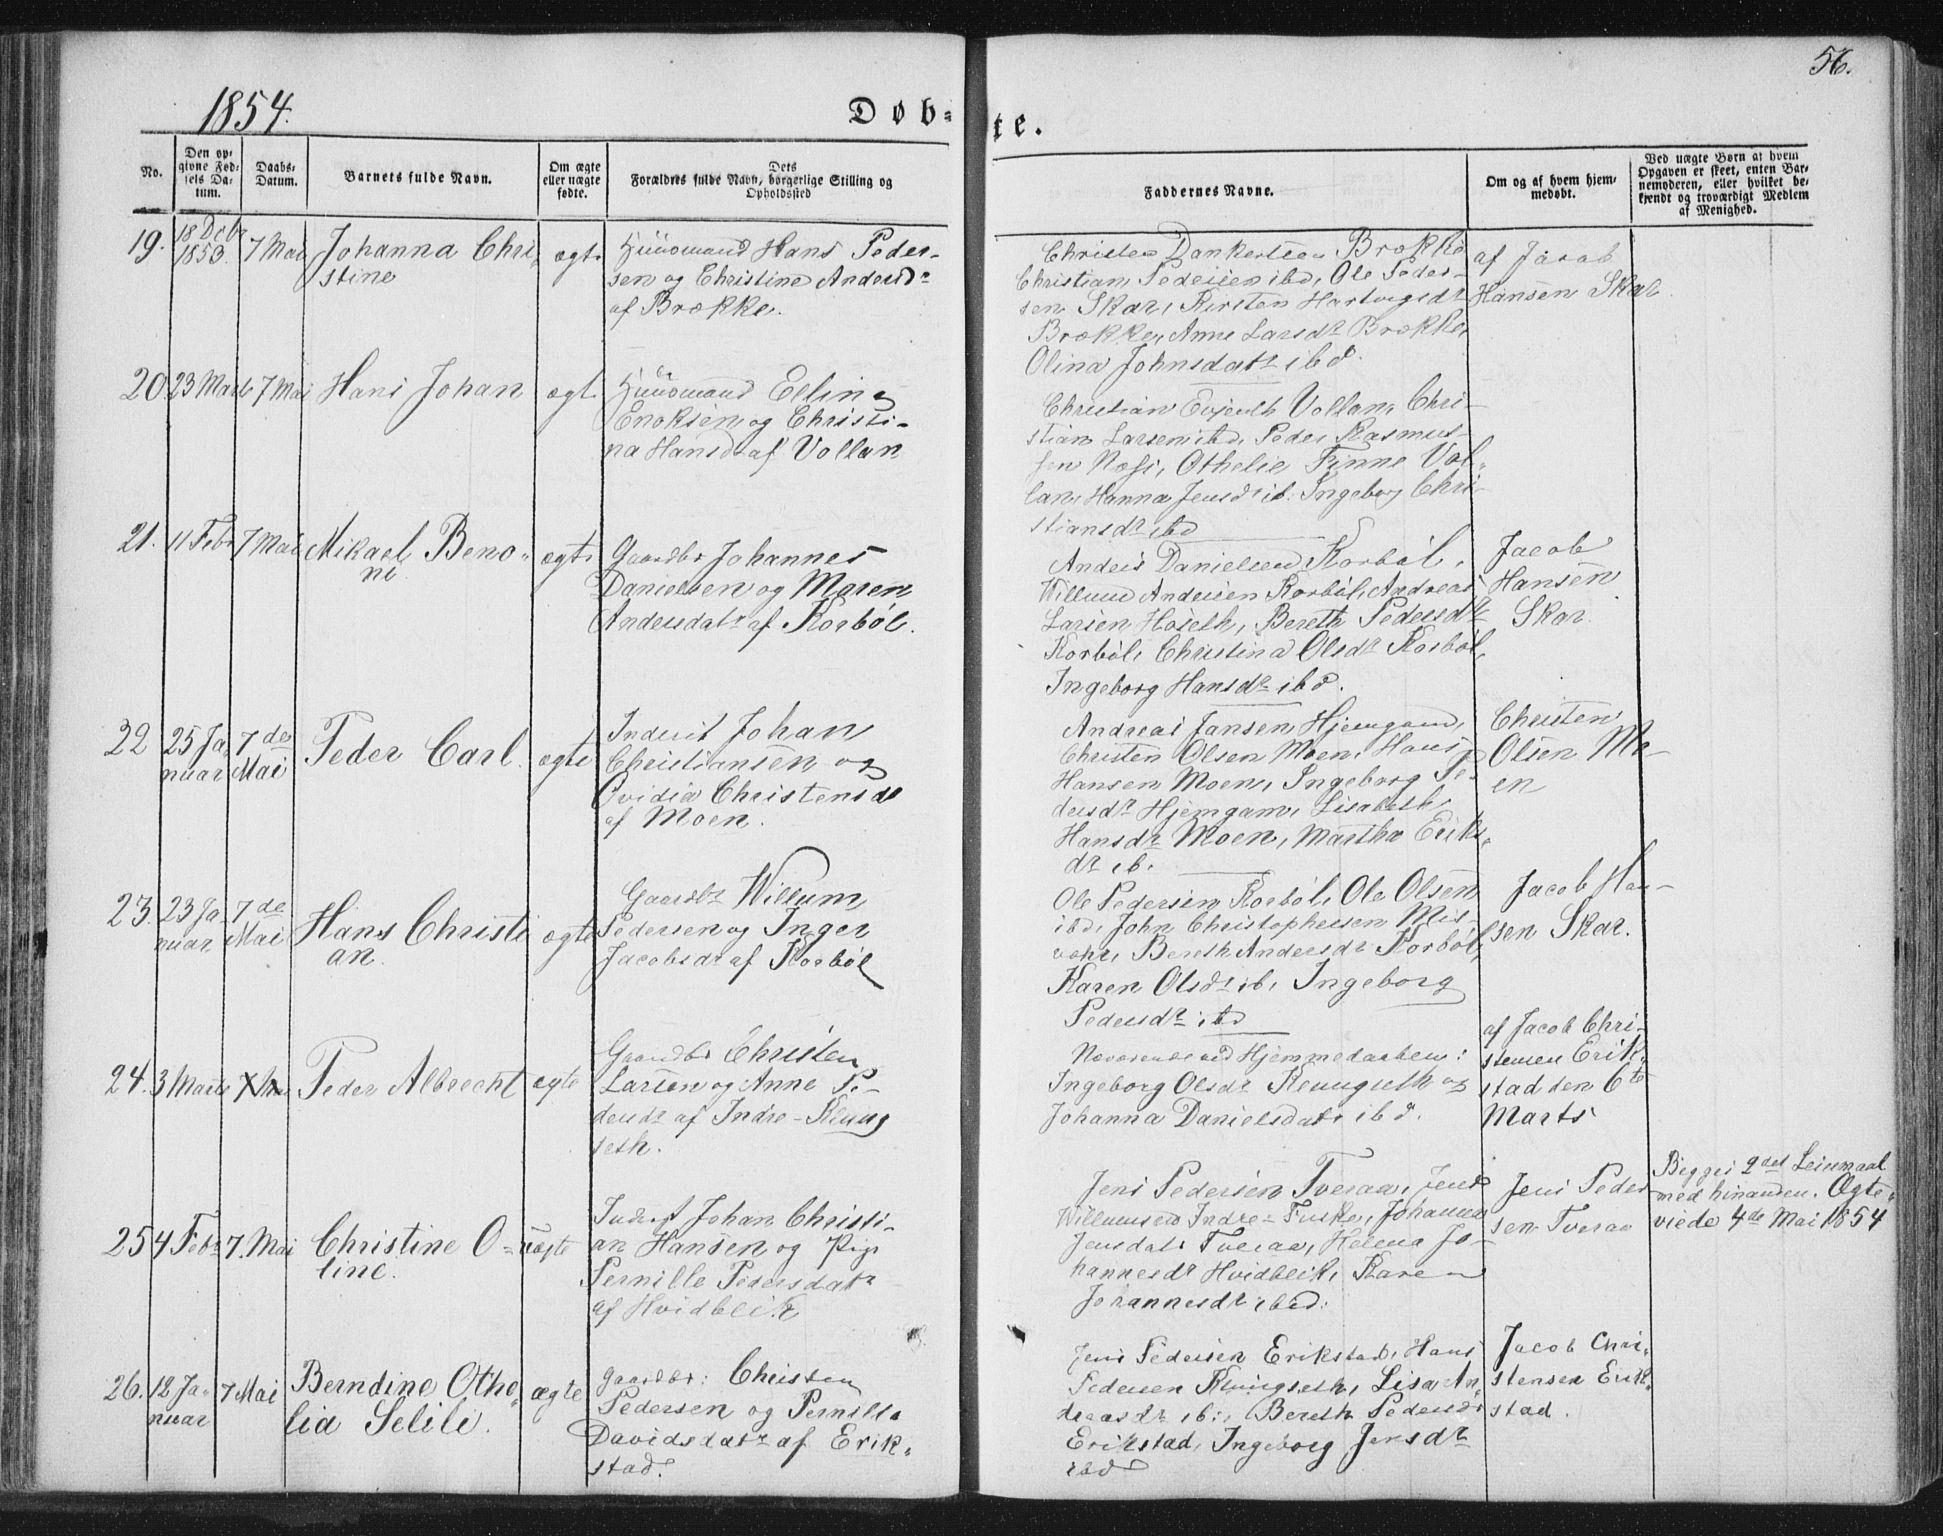 1854.
Døb-
te.
56.
No.
Den op-
givne Fød-
sels Da-
tum.
Daabs-
Datum.
Barnets fulde Navn.
Om ægte
eller uægte
fødte.
Dets
Forældres fulde Navn, borgerlige Stilling og
Opholdssted
Faddernes Navne.
Om og af hvem hjem-
medøbt.
Ved uægte Børn at hvem
Opgaven er skeet, enten Bar-
nemoderen, eller hvilket be-
kjendt og troværdigt Medlem
af Menighed.
19.
18 Debr
1853.
7 Mai
Johanna Chri-
stine
ægte
Huusmand Hans Peder-
sen og Christine Andersdr
af Brække.
Christen Dankertsen Brække
Christian Pedersen ibd, Ole Peder-
sen Skar, Kirsten Hartvigsdr
Brække, Anne Larsdr Brække,
Olina Johnsdatr ibd.
af Jacob
Hansen Skar
20
23 Marts
7 Mai
Hans Johan
ægte
Huusmand Elling
Enoksen og Christi-
na Hansd af Vollan
Christian Evjenth Vollan, Chri-
stian Larsen ibd, Peder Rasmus-
sen Næss, Othelie Finne Vol-
lan, Hanna Jensdr ib. Ingeborg Chri-
stiansdr ibd
21.
11 Febr
7 Mai
Mikael Beno-
ni
ægte
Gaardbr Johannes
Danielsen og Maren
Andersdatr af Korbøl.
Anders Danielsen Korbøl,
Willum Andersen Korbøl, Andreas
Larsen Høseth, Bereth Pedersdr
Korbøl, Christina Olsdr Korbøl,
Ingeborg Hansdr ibd.
Jacob
Hansen
Skar
22
25 Ja-
nuar
7de
Mai
Peder Carl.
ægte
Inderst Johan
Christiansen og
Ovidia Christensd
af Moen.
Andreas Jansen Hjemgam,
Christen Olsen Moen, Hans
Hansen Moen, Ingeborg Pe-
dersdr Hjemgam, Lisabeth
Hansdr Moen, Martha Eriks-
dr ib.
Christen
Olsen Mo-
en
23.
23 Ja-
nuar
7de
Mai
Hans Christi
an.
ægte
Gaardbr Willum
Pedersen og Inger
Jacobsdr af Korbøl
Ole Pedersen Korbøl, Ole Olsen
ibd, John Christophersen Mis-
vær, Bereth Andersdr Korbøl,
Karen Olsdr ib, Ingeborg
Pedersdr ibd
Jacob Han-
sen Skar.
24.
3 Marts
7 Mai
Peder Albrecht
ægte
Gaardbr Christen
Larsen og Anne Pe-
dersdr af Indre-Klung
seth.
Nærværende ved Hjemmedaaben:
Ingeborg Olsdr Klungseth og
Johanna Danielsdatr ibd.
af Jacob Chri-
stensen Erik-
stad den 6te
Marts
25
4 Febr
7. Mai
Christine O-
line.
uægte
Inderst Johan Christi-
an Hansen og Pige
Pernille Pedersdatr
af Hvidblik
Jens Pedersen Tveraa, Jens
Willumsen Indre-Fuske, Johanna
Jensdatr Tveraa, Helena Jo-
hannesdr Hvidblik, Karen
Johannesdr ibid:
Jens Peder-
sen Tveraa
Begges 2det Leiermaal
med hinanden. Ægte-
viede 4de Mai 1854
26.
12 Ja-
nuar
7 Mai
Berndine Othe-
lia Selili.
ægte
Gaardbr: Christen
Pedersen og Pernille
Davidsdatr af Erik-
stad.
Jens Pedersen Erikstad, Hans
Pedersen Klungseth, Lisa An-
dreasdr ib:, Bereth Pedersdr
Erikstad, Ingeborg Jensdr
ibd
Jacob Chri-
stensen Erik-
stad.